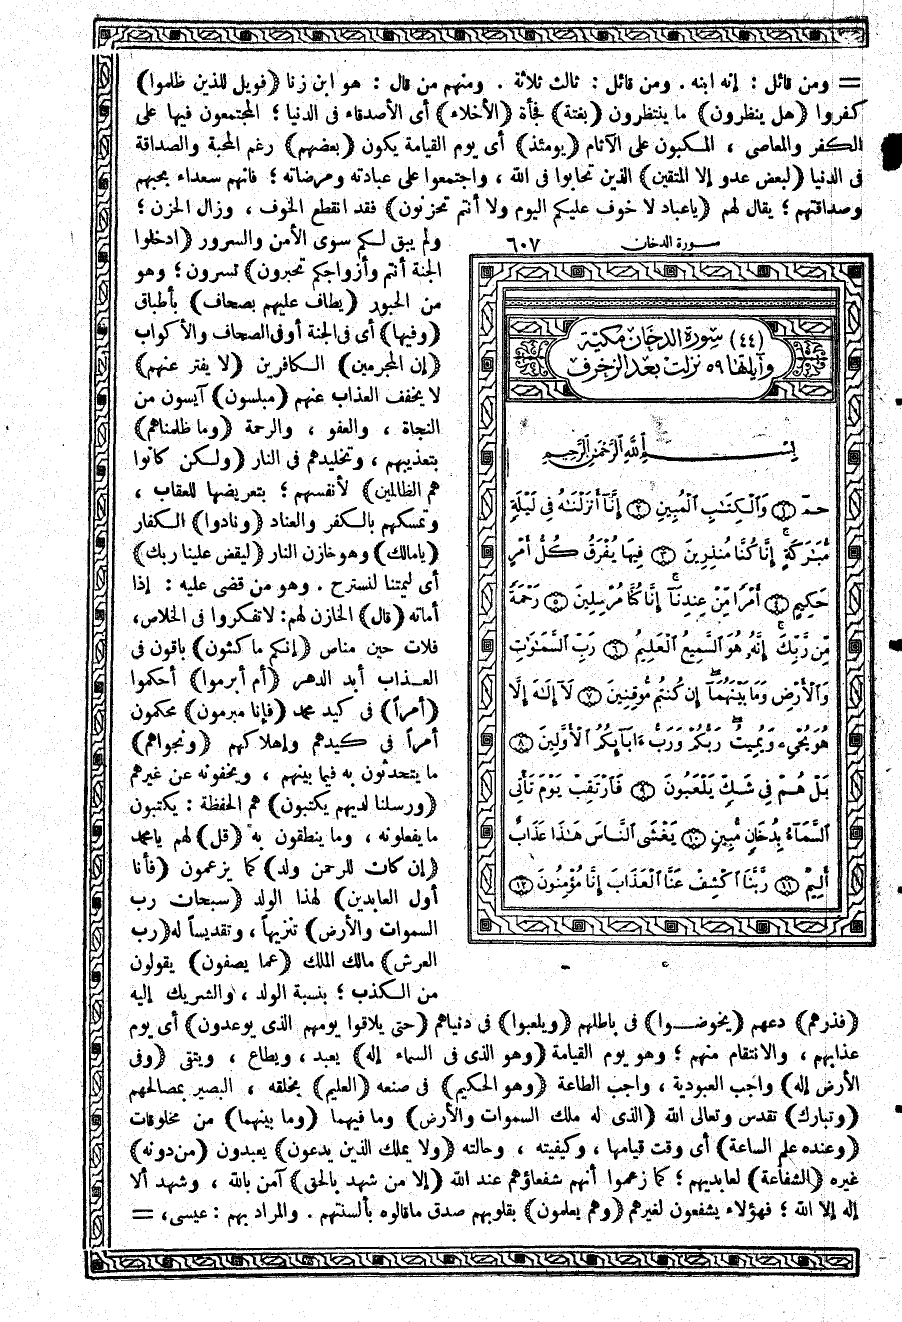 = ومن قائل : إنه ابنه . ومن قائل : ثالث ثلاثة . ومنهم من قال : هو ابن زنا (فويل للذين ظلموا)
كفروا (هل ينظرون) ما ينتظرون (بغتة) فجأة (الأخلاء) أى الأصدقاء فى الدنيا ؛ المجتمعون فيها على
الكفر والمعاصى ، المكبون على الآثام (يومئذ) أى يوم القيامة يكون (بعضهم) رغم المحبة والصداقة
فى الدنيا (لبعض عدو إلا المتقين) الذين تحابوا فى الله ، واجتمعوا على عبادته ومرضاته ؛ فانهم سعداء بحبهم
وصداقتهم ؛ يقال لهم (ياعباد لا خوف عليكم اليوم ولا أنتم تحزنون) فقد انقطع الخوف ، وزال الحزن ؛
ولم يبق لكم سوى الأمن والسرور (ادخلوا
الجنة أنتم وأزواجكم تحبرون) تسرون ؛ وهو
من الحبور (يطاف عليهم بصحاف) بأطباق
(وفيها) أى فى الجنة أو فى الصحاف والأكواب
(إن المجرمين) الكافرين (لا يفتر عنهم)
لا يخفف العذاب عنهم (مبلسون) آيسون من
النجاة ، والعفو ، والرحمة (وما ظلمناهم)
بتعذيبهم ، وتخليدهم فى النار (ولكن كانوا
هم الظالمين) لأنفسهم ؛ بتعريضها للعقاب ،
وتمسكهم بالكفر والعناد (ونادوا) الكفار
(يامالك) وهو خازن النار (ليقض علينا ربك)
أى ليمتنا لنسترح . وهو من قضى عليه : إذا
أماته (قال) الخازن لهم: لا تفكروا فى الخلاص،
فلات حين مناص (إنكم ماكثون) باقون فى
العذاب أبد الدهر (أم أبرموا) أحكموا
(أمراً) فى كيد محمد (فإنا مبرمون) محكمون
أمراً فى كيدهم وإهلاكهم (ونجواهم)
ما يتحدثون به فيما بينهم ، ويخفونه عن غيرهم
(ورسلنا لديهم يكتبون) هم الحفظة : يكتبون
ما يفعلونه ، وما ينطقون به (قل) لهم يامحمد
(إن كان للرحمن ولد) كما يزعمون (فأنا
أول العابدين) لهذا الولد (سبحان رب
السموات والأرض) تنزيهاً ، وتقديساً له (رب
العرش) مالك الملك (عما يصفون) يقولون
من الكذب ؛ بنسبة الولد ، والشريك إليه
سورة الدخان ٦٠٧
(٤٤) سورة الدخان مكية
وآياتها ٥٩ نزلت بعد الزخرف
بِسْمِ ٱللَّهِ ٱلرَّحْمَٰنِ ٱلرَّحِيمِ
حمٓ ١ وَٱلْكِتَٰبِ ٱلْمُبِينِ ٢ إِنَّآ أَنزَلْنَٰهُ فِى لَيْلَةٍ
مُّبَٰرَكَةٍ ۚ إِنَّا كُنَّا مُنذِرِينَ ٣ فِيهَا يُفْرَقُ كُلُّ أَمْرٍ
حَكِيمٍ ٤ أَمْرًا مِّنْ عِندِنَآ ۚ إِنَّا كُنَّا مُرْسِلِينَ ٥ رَحْمَةً
مِّن رَّبِّكَ ۚ إِنَّهُۥ هُوَ ٱلسَّمِيعُ ٱلْعَلِيمُ ٦ رَبِّ ٱلسَّمَٰوَٰتِ
وَٱلْأَرْضِ وَمَا بَيْنَهُمَآ ۖ إِن كُنتُم مُّوقِنِينَ ٧ لَآ إِلَٰهَ إِلَّا
هُوَ يُحْىِۦ وَيُمِيتُ ۖ رَبُّكُمْ وَرَبُّ ءَابَآئِكُمُ ٱلْأَوَّلِينَ ٨
بَلْ هُمْ فِى شَكٍّ يَلْعَبُونَ ٩ فَٱرْتَقِبْ يَوْمَ تَأْتِى
ٱلسَّمَآءُ بِدُخَانٍ مُّبِينٍ ١٠ يَغْشَى ٱلنَّاسَ هَٰذَا عَذَابٌ
أَلِيمٌ ١١ رَّبَّنَا ٱكْشِفْ عَنَّا ٱلْعَذَابَ إِنَّا مُؤْمِنُونَ ١٢
(فذرهم) دعهم (يخوضوا) فى باطلهم (ويلعبوا) فى دنياهم (حتى يلاقوا يومهم الذى يوعدون) أى يوم
عذابهم ، والانتقام منهم ؛ وهو يوم القيامة (وهو الذى فى السماء إله) يعبد ، ويطاع ، ويتقى (وفى
الأرض إله) واجب العبودية ، واجب الطاعة (وهو الحكيم) فى صنعه (العليم) بخلقه ، البصير بمصالحهم
(وتبارك) تقدس وتعالى الله (الذى له ملك السموات والأرض) وما فيهما (وما بينهما) من مخلوقات
(وعنده علم الساعة) أى وقت قيامها ، وكيفيته ، وحالته (ولا يملك الذين يدعون) يعبدون (من دونه)
غيره (الشفاعة) لعابديهم ؛ كما زعموا أنهم شفعاؤهم عند الله (إلا من شهد بالحق) آمن بالله ، وشهد ألا
إله إلا الله ؛ فهؤلاء يشفعون لغيرهم (وهم يعلمون) بقلوبهم صدق ماقالوه بألسنتهم . والمراد بهم : عيسى ، =